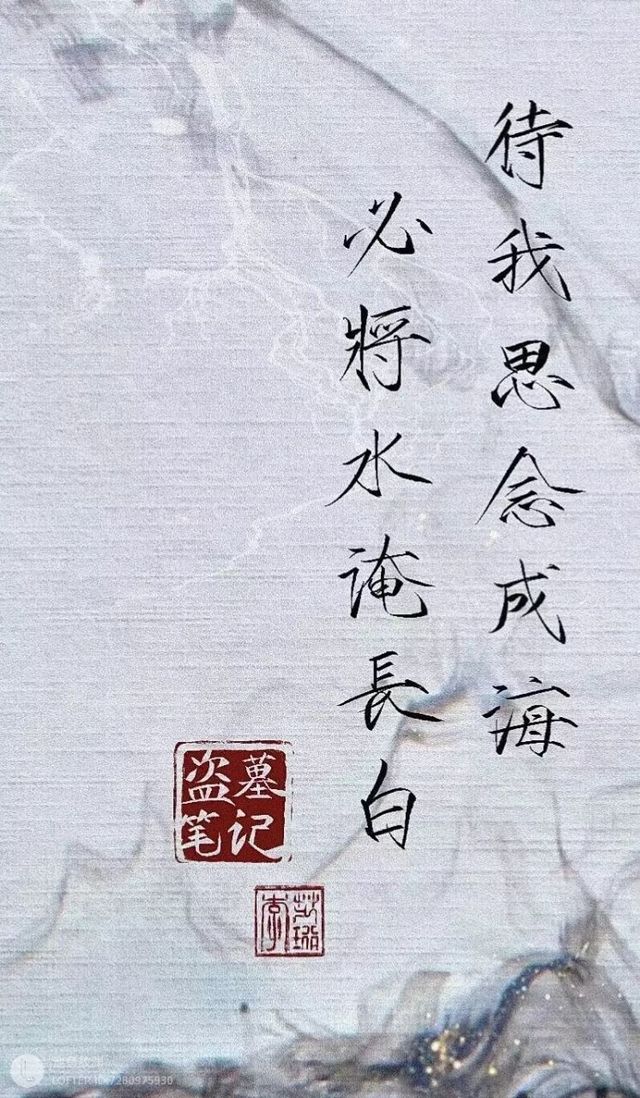 待我思念成海
必將水淹長白
盗墓
笔记
LOFTER ID